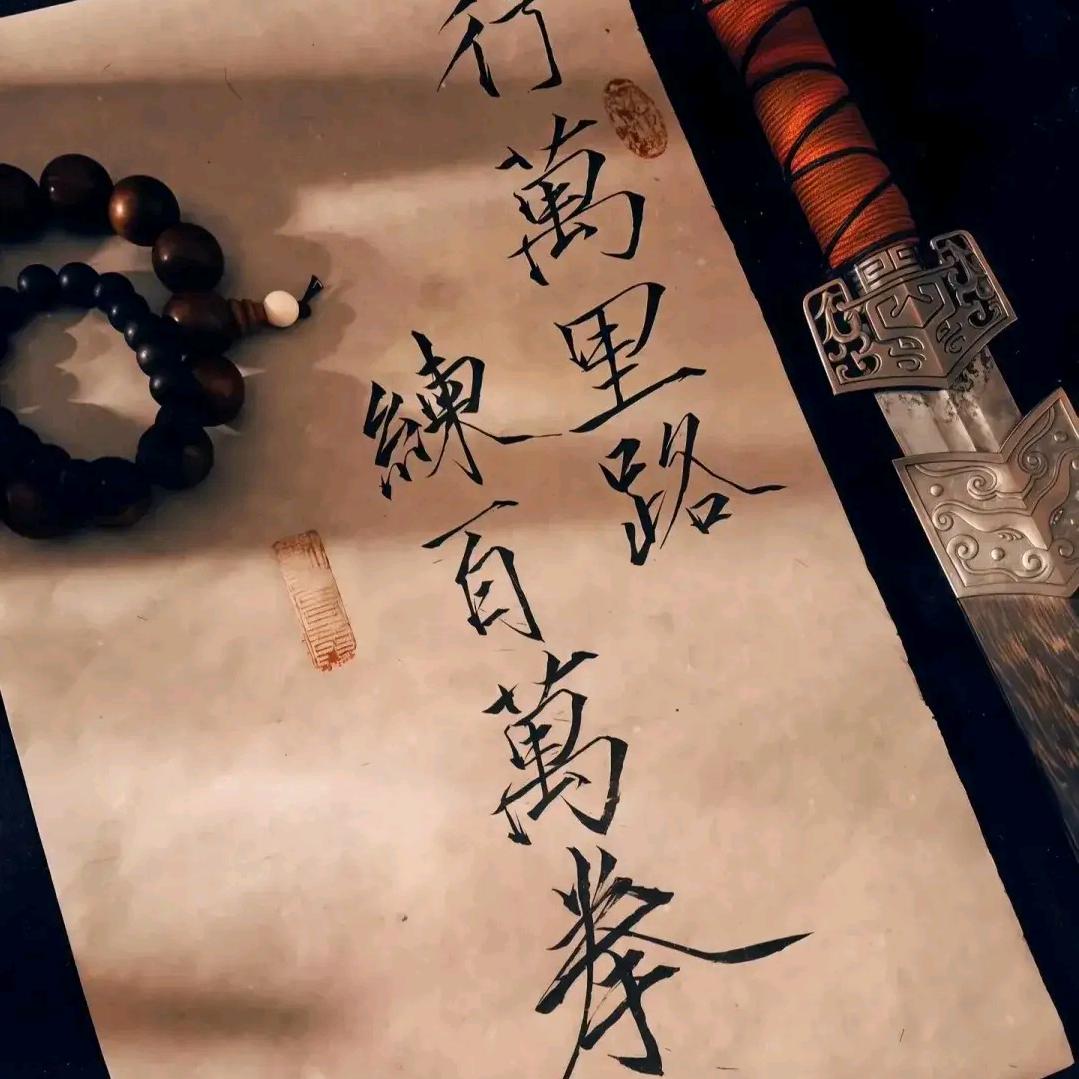 行萬里路
練百萬拳